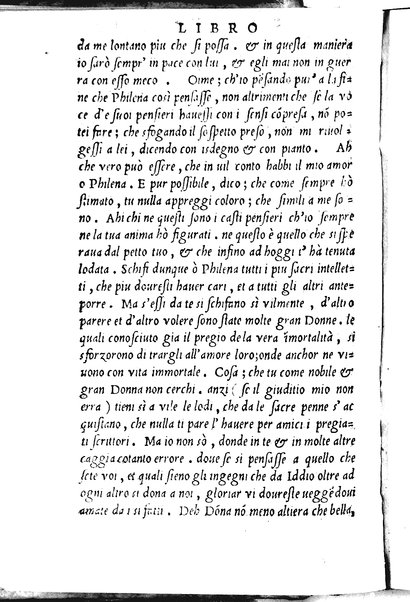 LIBRO
da me lontano piu che si possa. & in questa maniera
io sarò sempr' in pace con lui, & egli mai non in guer
ra con esso meco. Oime; ch'io pēsando pur' a la fi=
ne che Philena così pensasse, non altrimenti che se la vo
ce d'e suoi pensieri havessi con i sensi cōpresa, nō po=
tei fare; che sfogando il sospetto preso, non mi rivol=
gessi a lei, dicendo con isdegno & con pianto. Ah
che vero può essere, che in vil conto habbi il mio amor
o Philena. E pur possibile, dico; che come sempre hò
stimato, tu nulla appreggi coloro; che simili a me so=
no. Ahi chi ne questi sono i casti pensieri ch'io sempre
ne la tua anima hò figurati. ne questo è quello che si spe
rava dal petto tuo, & che infino ad hoggi t'hà tenuta
lodata. Schifi dunque ò Philena tutti i piu sacri intellet=
ti, che piu dovresti haver cari, et a tutti gli altri ante=
porre. Ma s'essi da te si schifano sì vilmente, d'altro
parere et d'altro volere sono state molte gran Donne. le
quali conosciuto gia il pregio de la vera īmortalità, si
sforzorono di trargli all'amore loro; onde anchor ne vi=
vono con vita immortale. Cosa; che tu come nobile &
gran Donna non cerchi. anzi (se il giuditio mio non
erra) tieni sì a vile le lodi, che da le sacre penne s'ac
quistano, che nulla ti pare l'havere per amici i pregia
ti scrittori. Ma io non sò, donde in te & in molte altre
caggia cotanto errore. dove se si pensasse a quello che
sete voi, et quali sieno gli ingegni che da Iddio oltre ad
ogni altro si dona a noi, gloriar vi dovreste veggēdovi
amate da i si fatti. Deh Dōna nō meno altiera che bella,